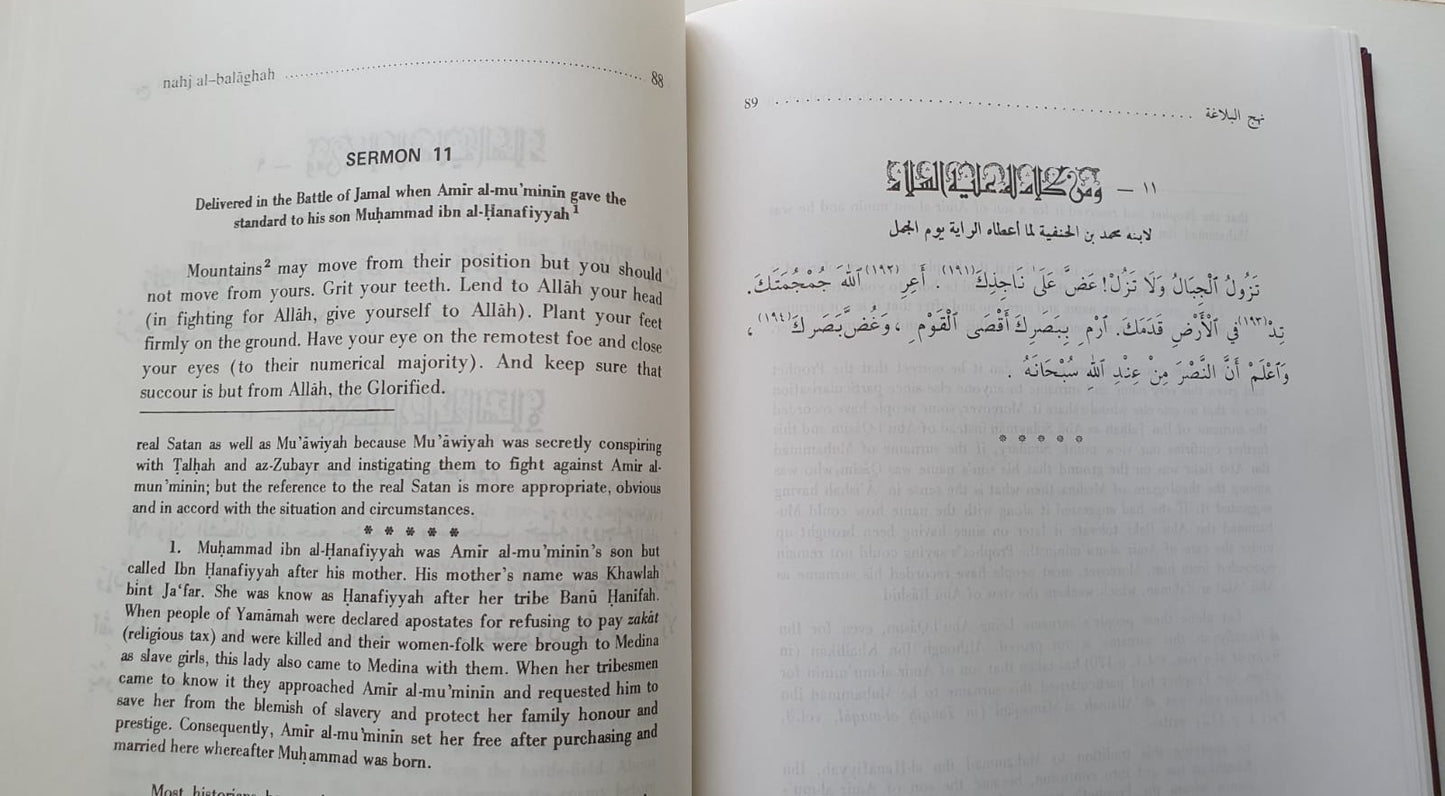 nahj al-balāghah ........ 88
SERMON 11
Delivered in the Battle of Jamal when Amir al-mu'minin gave the
standard to his son Muḥammad ibn al-Ḥanafiyyah¹
Mountains² may move from their position but you should
not move from yours. Grit your teeth. Lend to Allāh your head
(in fighting for Allāh, give yourself to Allāh). Plant your feet
firmly on the ground. Have your eye on the remotest foe and close
your eyes (to their numerical majority). And keep sure that
succour is but from Allāh, the Glorified.
real Satan as well as Mu'āwiyah because Mu'āwiyah was secretly conspiring
with Ṭalḥah and az-Zubayr and instigating them to fight against Amir al-
mun'minin; but the reference to the real Satan is more appropriate, obvious
and in accord with the situation and circumstances.
* * * * *
1. Muḥammad ibn al-Ḥanafiyyah was Amir al-mu'minin's son but
called Ibn Ḥanafiyyah after his mother. His mother's name was Khawlah
bint Ja'far. She was know as Ḥanafiyyah after her tribe Banū Ḥanifah.
When people of Yamāmah were declared apostates for refusing to pay zakāt
(religious tax) and were killed and their women-folk were brough to Medina
as slave girls, this lady also came to Medina with them. When her tribesmen
came to know it they approached Amir al-mu'minin and requested him to
save her from the blemish of slavery and protect her family honour and
prestige. Consequently, Amir al-mu'minin set her free after purchasing and
married here whereafter Muḥammad was born.
Most
89 ........ نهج البلاغة
١١ — ومن كلام له عليه السلام
لابنه محمد بن الحنفية لما أعطاه الراية يوم الجمل
تَزُولُ ٱلْجِبَالُ وَلَا تَزُلْ! عَضَّ عَلَىٰ نَاجِذِكَ(١٩١). أَعِرِ(١٩٢) ٱللهَ جُمْجُمَتَكَ.
تِدْ(١٩٣) فِي ٱلْأَرْضِ قَدَمَكَ. ٱرْمِ بِبَصَرِكَ أَقْصَى ٱلْقَوْمِ، وَغُضَّ بَصَرَكَ(١٩٤)،
وَٱعْلَمْ أَنَّ النَّصْرَ مِنْ عِنْدِ ٱللهِ سُبْحَانَهُ.
* * * * *